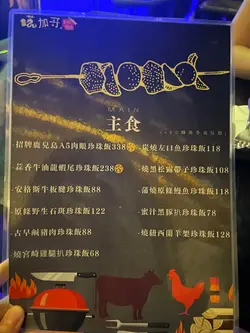 MAIN
主食
招牌鹿兒島A5肉眼珍珠飯238
蒜香牛油龍蝦尾珍珠飯238
安格斯牛板腱珍珠飯88
原條野生石斑珍珠飯122
古早鹹豬肉珍珠飯88
燒宮崎雞腿扒珍珠飯68
炭燒左口魚珍珠飯118
燒黑松露帶子珍珠飯108
蒲燒原條鰻魚珍珠飯118
蜜汁黑豚扒珍珠飯78
燒紐西蘭羊架珍珠飯128